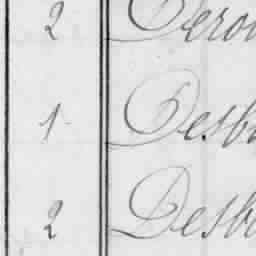 2 Derou
1 Desb
2 Desb